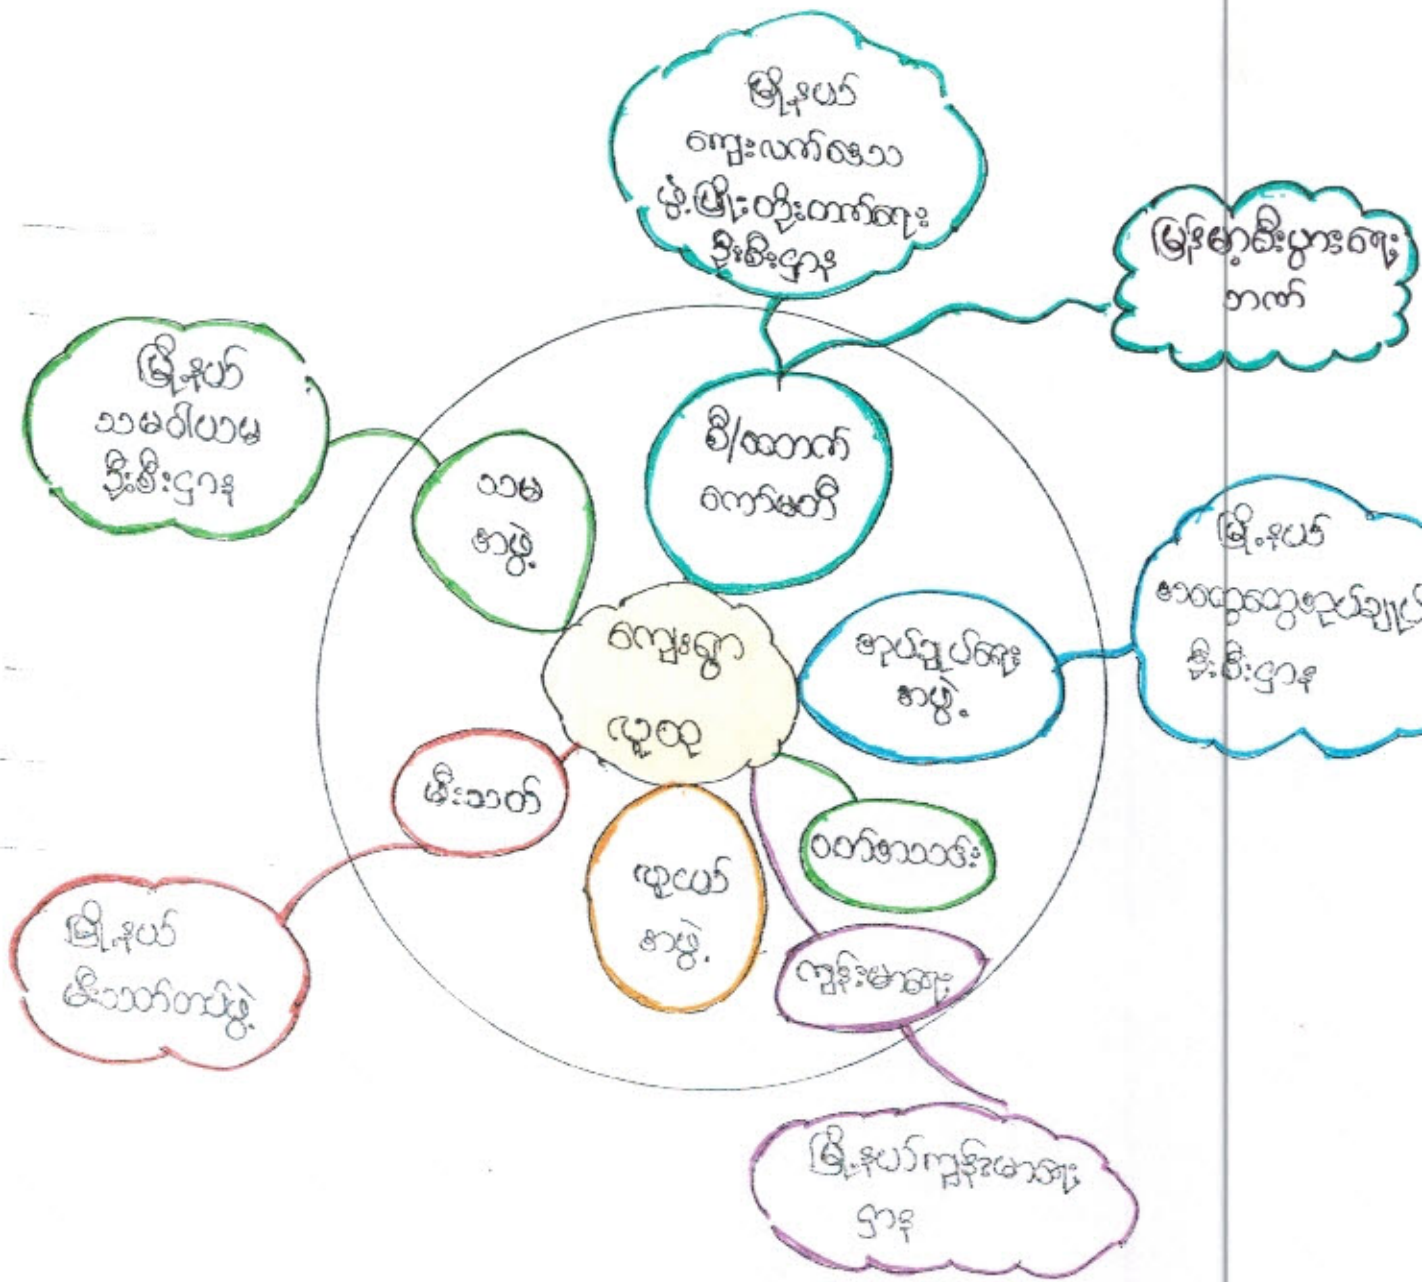 မြို့နယ်
ကျေးလက်ဒေသ
ဖွံ့ဖြိုးတိုးတက်ရေး
ဦးစီးဌာန
မြန်မာ့စီးပွားရေး
ဘဏ်
မြို့နယ်
သမဝါယမ
ဦးစီးဌာန
သမ
အဖွဲ့
စီ/ထောက်
ကော်မတီ
မြို့နယ်
အထွေထွေအုပ်ချုပ်
ဦးစီးဌာန
ကျေးရွာ
လူထု
အုပ်ချုပ်ရေး
အဖွဲ့
မီးသတ်
ဝတ်အသင်း
လူငယ်
အဖွဲ့
မြို့နယ်
မီးသတ်တပ်ဖွဲ့
ကျန်းမာရေး
မြို့နယ်ကျန်းမာရေး
ဌာန